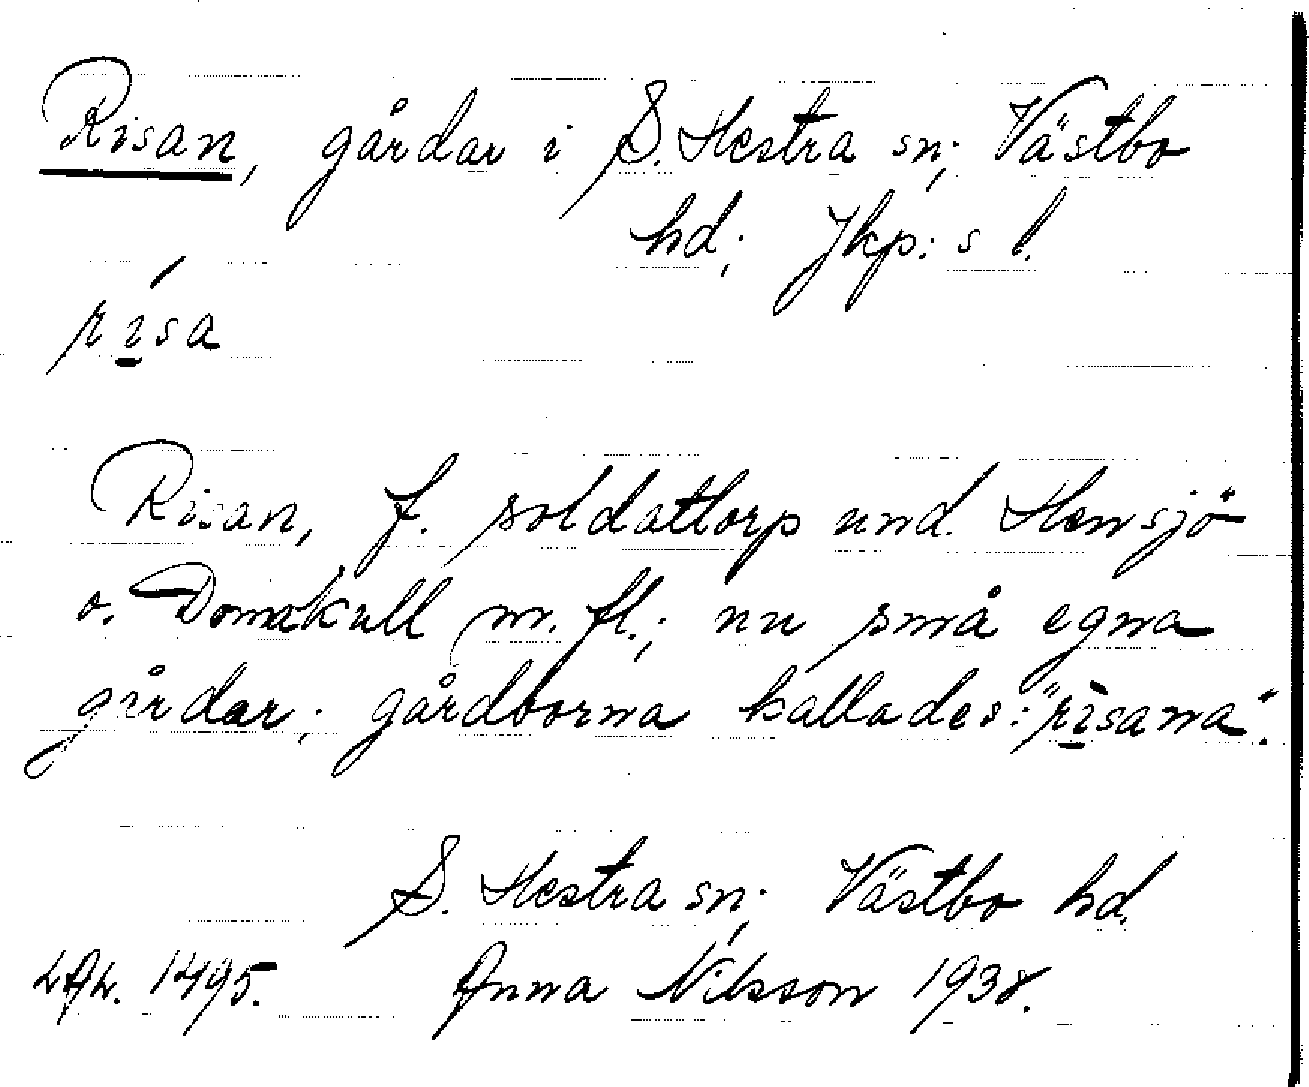 Risan, gårdar i S. Hestra sn; Västbo
hd; Jkp:s l.
rísa
Risan, f. soldattorp und. Hensjö
o. Domkull m. fl.; nu små egna
gårdar; gårdborna kallades: "risana".
S. Hestra sn; Västbo hd.
1495. Anna Nilsson 1938.